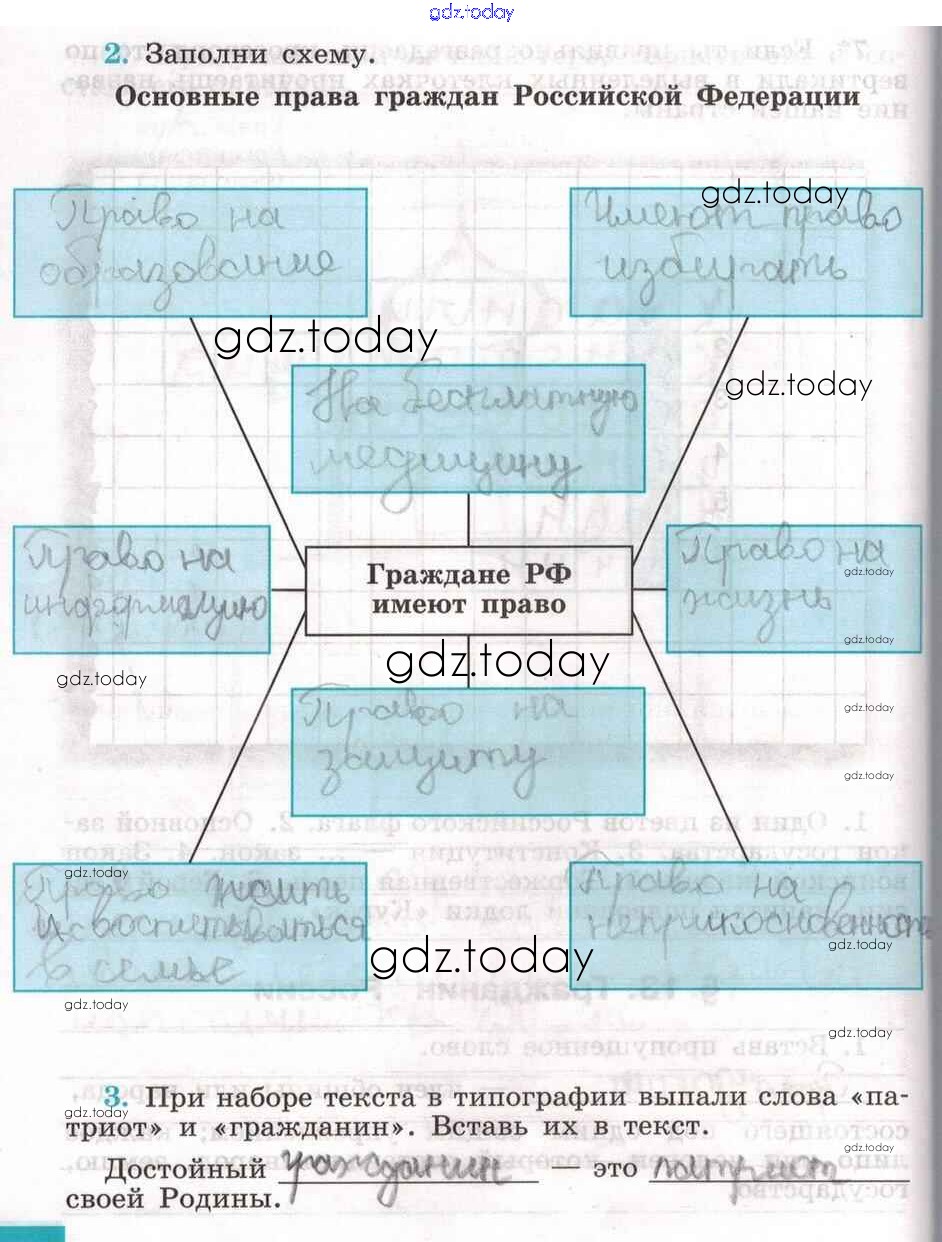 gdz.today
2. Заполни схему.
Основные права граждан Российской Федерации
Право на
образование
gdz.today
Имеют право
избирать
gdz.today
gdz.today
На бесплатную
медицину
Право на
информацию
Граждане РФ
имеют право
Право на
жизнь
gdz.today
gdz.today
gdz.today
gdz.today
gdz.today
gdz.today
Право на
защиту
Право жить
и воспитываться
в семье
gdz.today
Право на
неприкосновенность
gdz.today
gdz.today
gdz.today
gdz.today
3. При наборе текста в типографии выпали слова «па-
триот» и «гражданин». Вставь их в текст.
gdz.today
gdz.today
Достойный гражданин — это патриот
своей Родины.